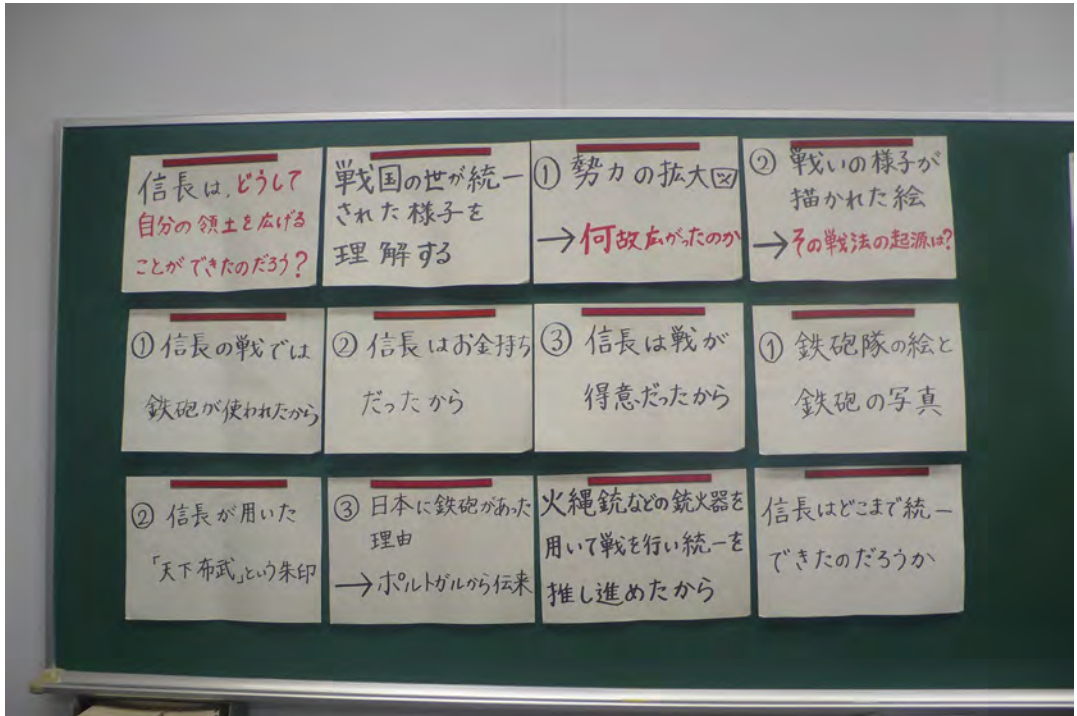 信長は、どうして
自分の領土を広げる
ことができたのだろう？
戦国の世が統一
された様子を
理解する
① 勢力の拡大図
→何故広がったのか
② 戦いの様子が
描かれた絵
→その戦法の起源は?
① 信長の戦では
鉄砲が使われたから
② 信長はお金持ち
だったから
③ 信長は戦が
得意だったから
① 鉄砲隊の絵と
鉄砲の写真
② 信長が用いた
「天下布武」という朱印
③ 日本に鉄砲があった
理由
→ポルトガルから伝来
火縄銃などの銃火器を
用いて戦を行い統一を
推し進めたから
信長はどこまで統一
できたのだろうか